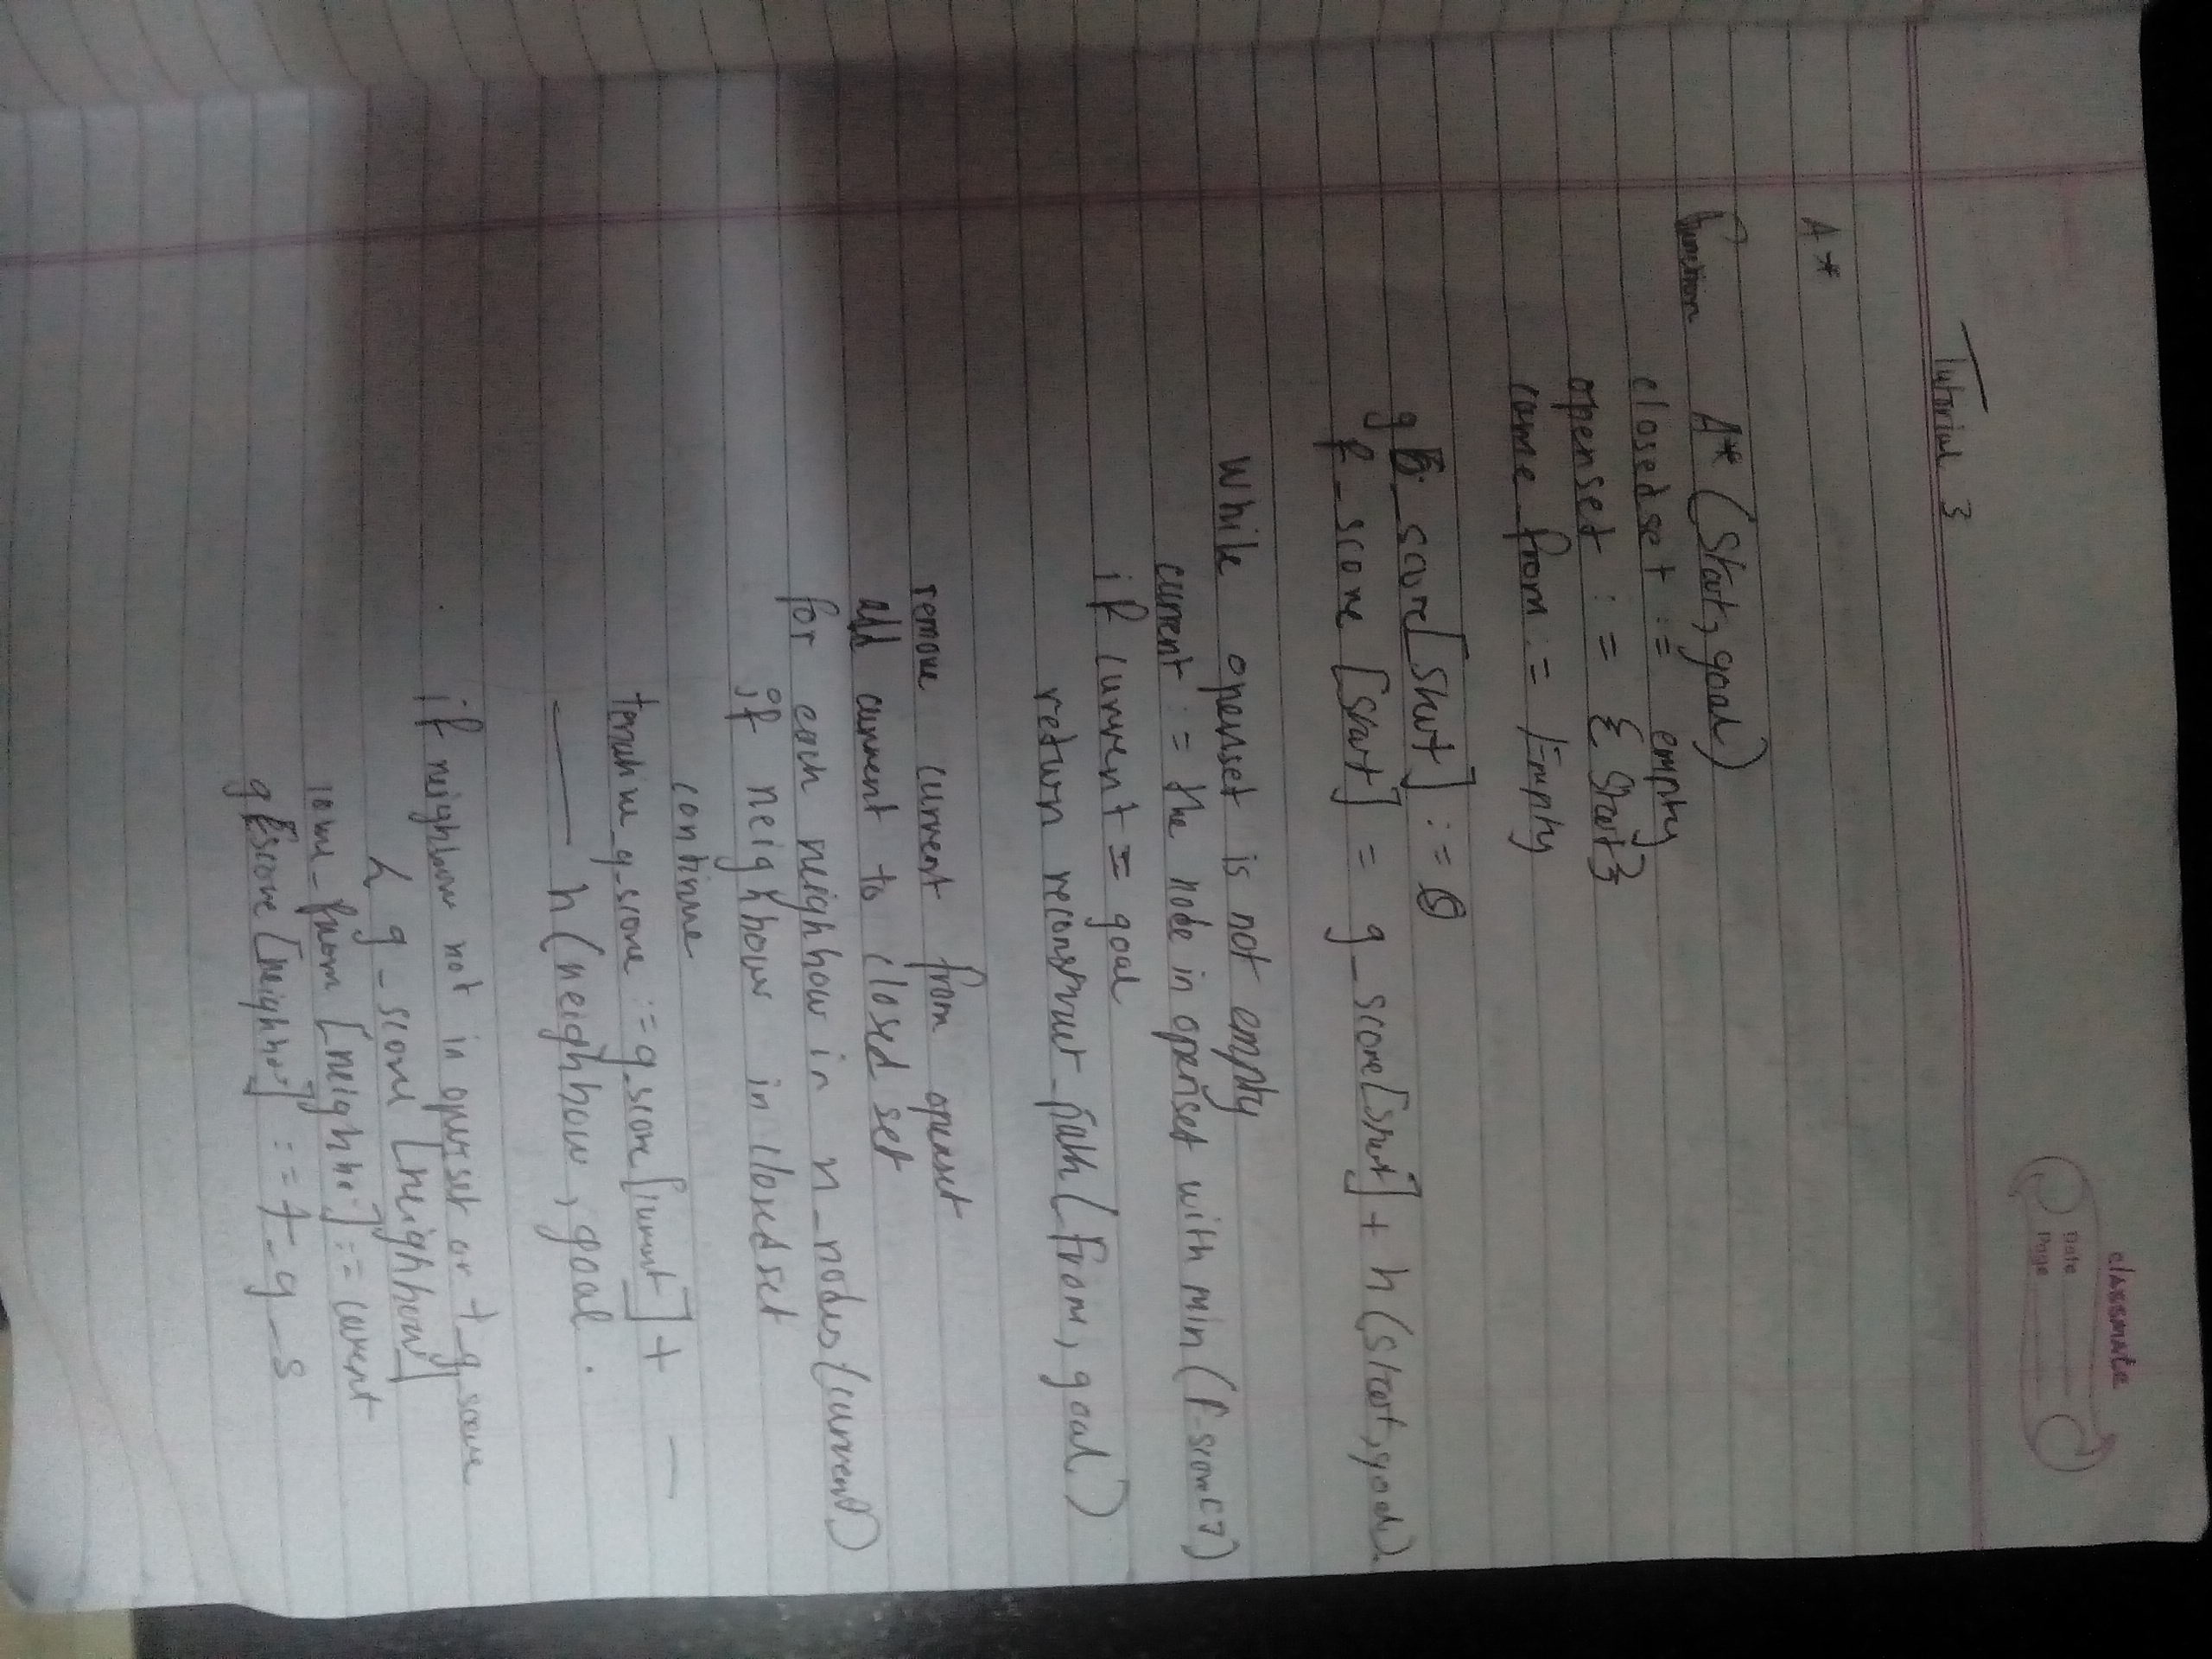 classmate
Date
Page
Tutorial 3
A*
function A* (Start, goal)
closedset := empty
openset := {Start}
came_from := Empty
g_score[Start] := 0
f_score [Start] = g_score[Start] + h (Start, goal).
While openset is not empty
current := the node in openset with min (f-score[])
if current = goal
return reconstruct_path (from, goal)
remove current from openset
add current to closed set
for each neighbour in n_nodes (current)
if neighbour in closed set
continue
tentative_g_score := g_score[current] + —
— h (neighbour, goal.
if neighbour not in openset or t_g_score
< g_score [neighbour]
came_from [neighbor] := current
g_score [neighbor] := t_g_s